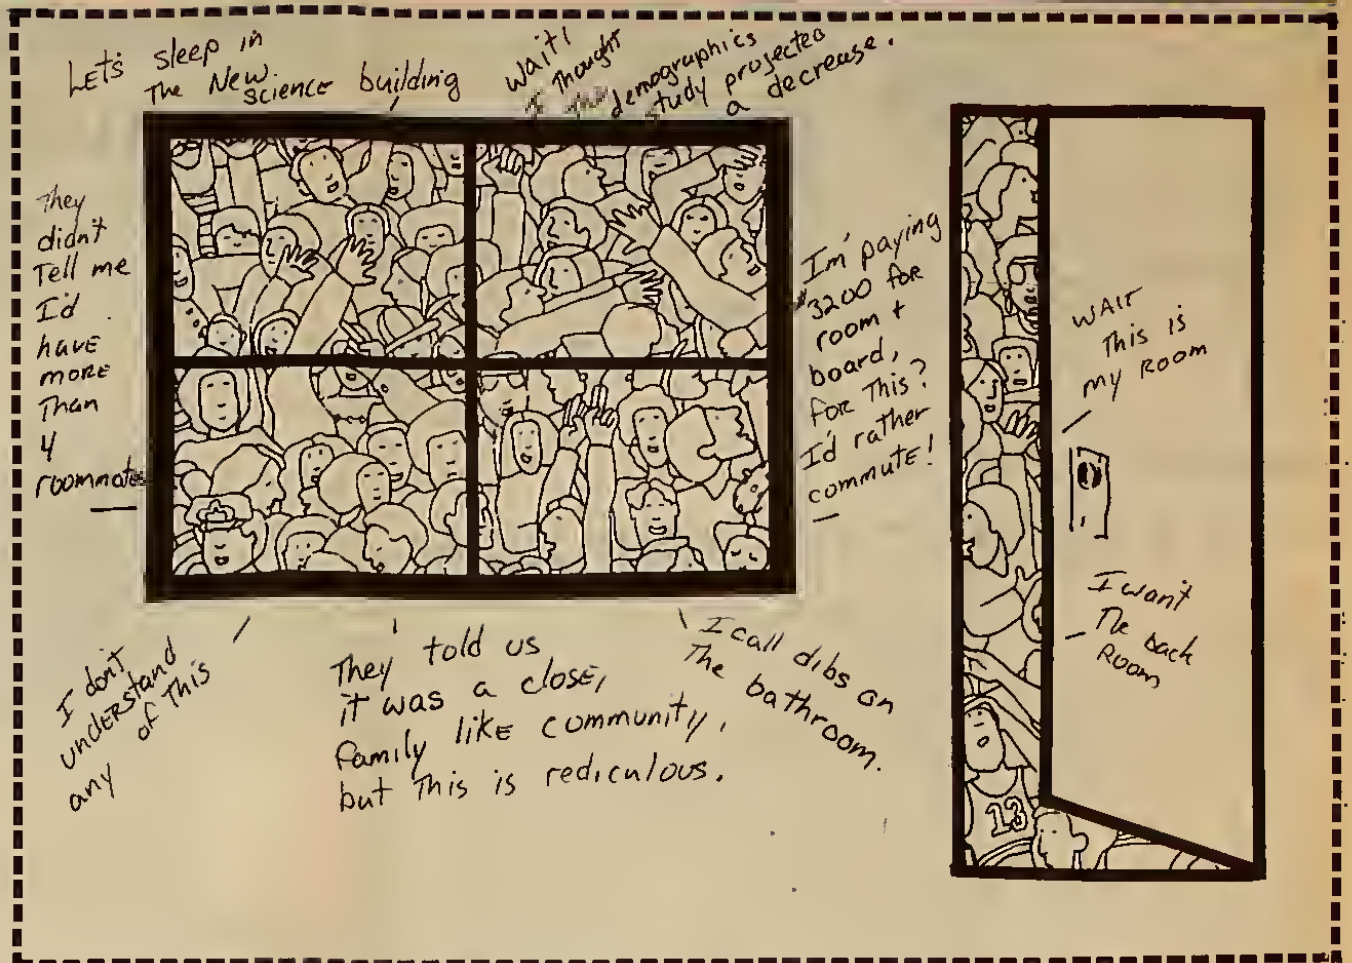 Let's sleep in
The New
science building
Wait!
I Thought
The demographics
study projected
a decrease.
They
didn't
Tell me
I'd
have
more
Than
4
roommates
I'm paying
3200 for
room +
board,
for This?
I'd rather
commute!
WAIT
This is
my Room
I want
The back
Room
I don't
understand
any of This
They told us
it was a close,
family like community,
but This is rediculous.
I call dibs on
The bathroom.
13